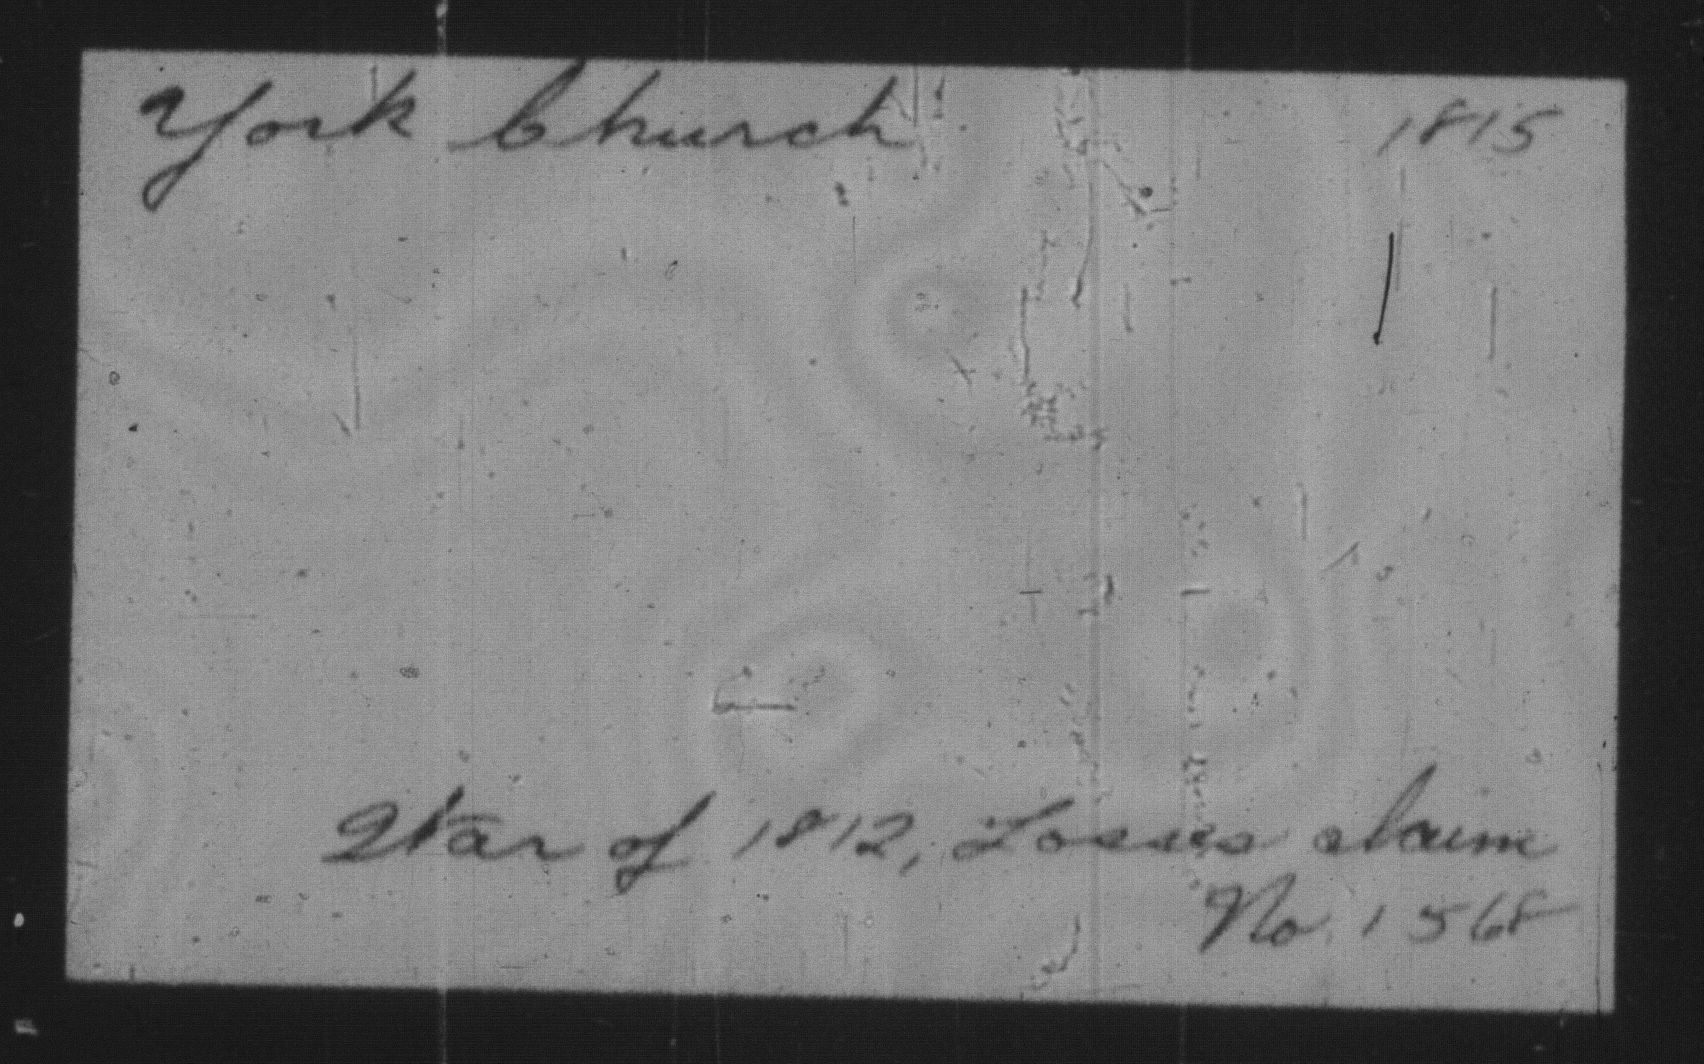 York Church 1815
War of 1812, Losses claim
No. 1568